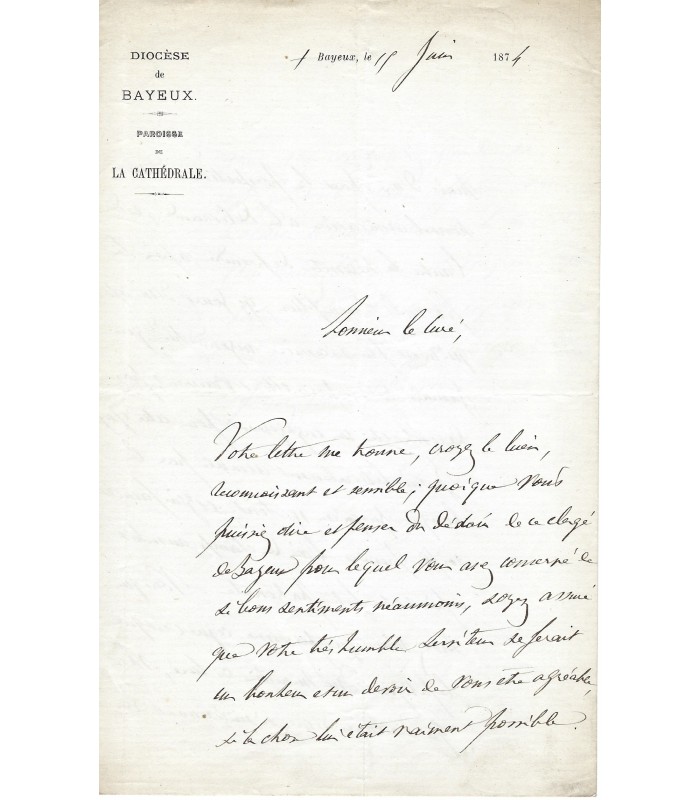 DIOCÈSE
de
BAYEUX.
PAROISSE
DE
LA CATHÉDRALE.
+ Bayeux, le 15 Juin 1874
Monsieur le Curé,
Votre lettre me trouve, croyez le bien,
reconnaissant et sensible ; quoique vous
puissiez dire et penser du dédain de ce clergé
de Bayeux pour lequel vous avez conservé de
si bons sentiments néaumoins, soyez assuré
que votre très humble serviteur se ferait
un bonheur et un devoir de vous être agréable,
si la chose lui était vraiment possible.